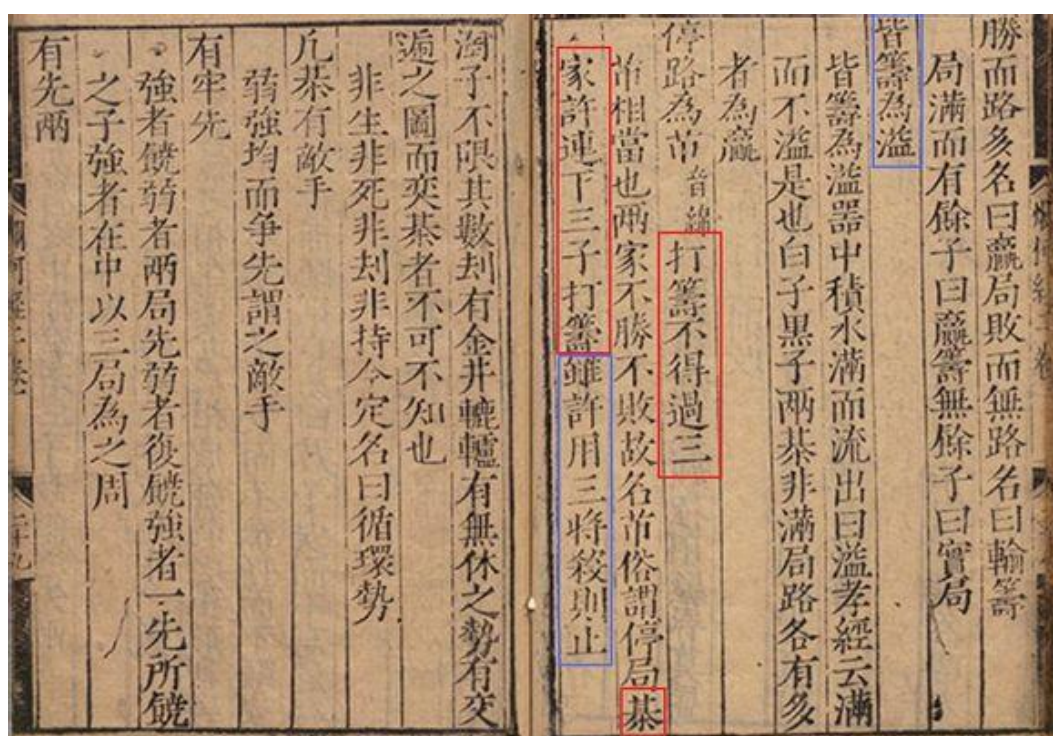 勝而路多名曰贏局敗而無路名曰輸籌
局滿而有餘子曰贏籌無餘子曰實局
皆籌為溢
皆籌為溢器中積水滿而流出曰溢孝經云滿
而不溢是也白子黑子兩棊非滿局路各有多
者為贏
停路為芇 音綿 打籌不得過三
芇相當也兩家不勝不敗故名芇俗謂停局棊
家許連下三子打籌雖許用三將殺則止
淘子不限其數刦有金井轆轤有無休之勢有交
遞之圖而奕棊者不可不知也
非生非死非刦非持今定名曰循環勢
凡棊有敵手
弱強均而爭先謂之敵手
有牢先
強者饒弱者兩局先弱者復饒強者一先所饒
之子強者在中以三局為之周
有先兩